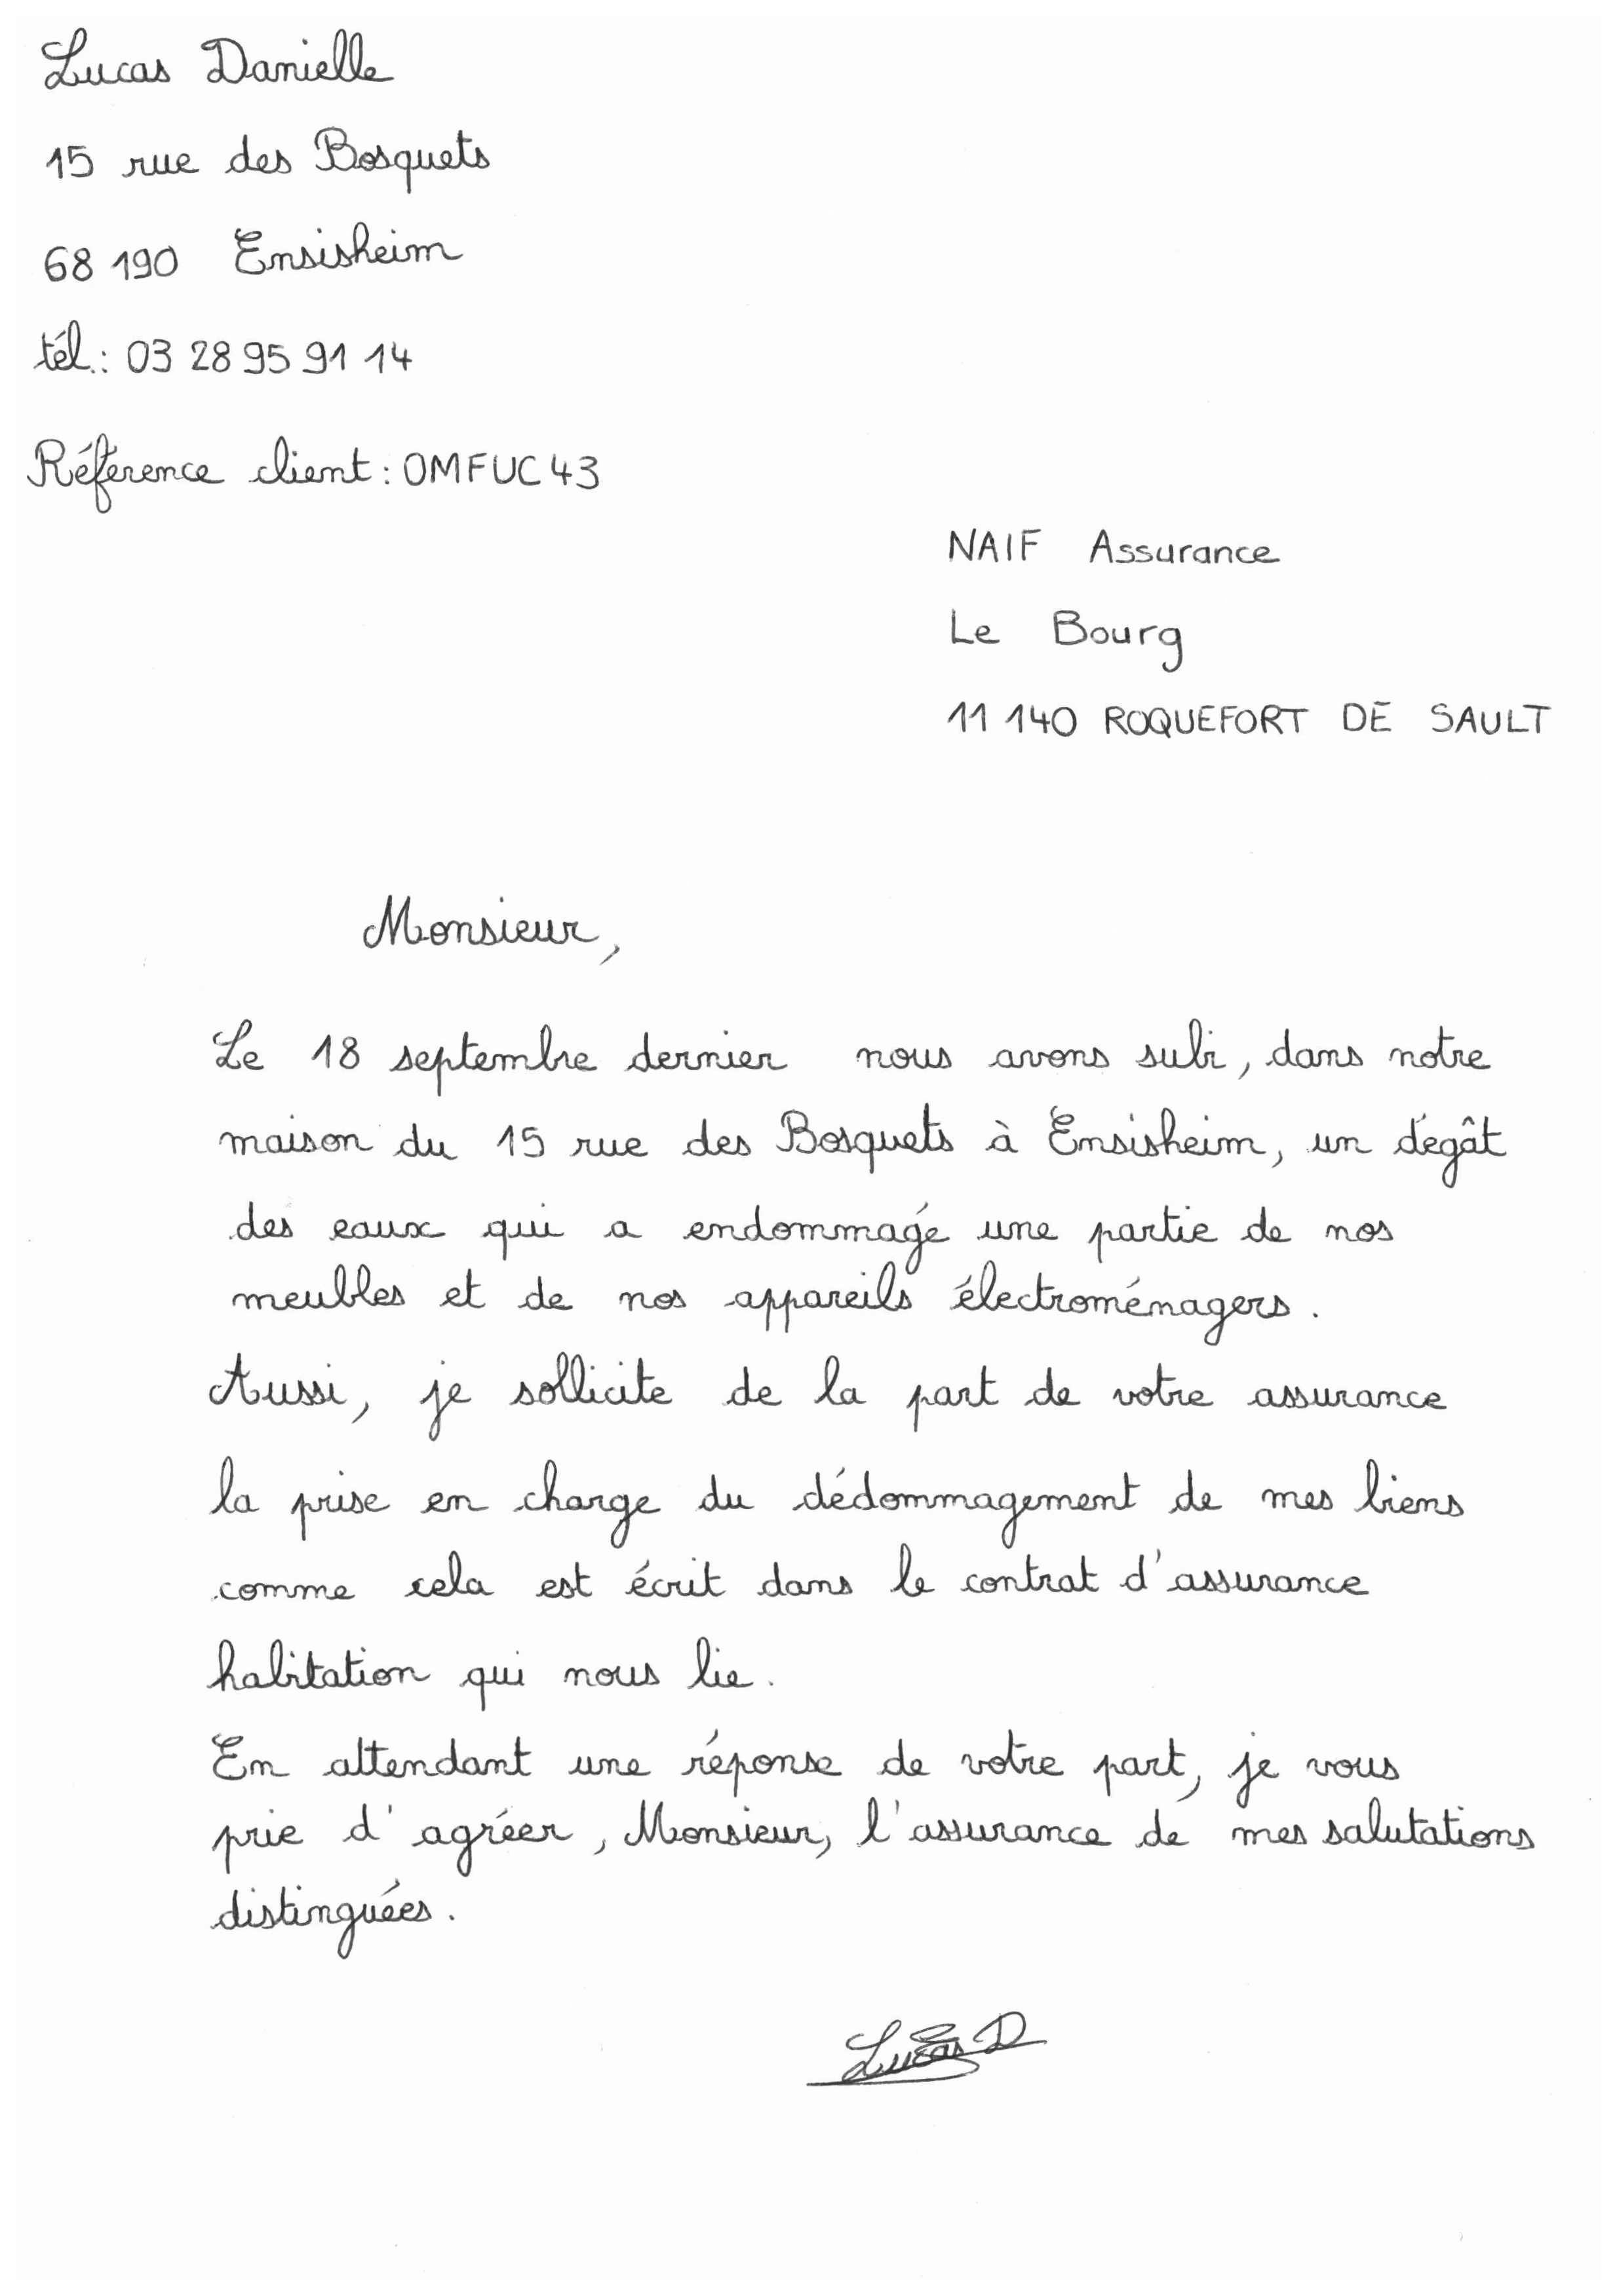 Lucas Danielle
15 rue des Bosquets
68 190 Ensisheim
tél.: 03 28 95 91 14
Référence client : OMFUC43
NAIF Assurance
Le Bourg
11 140 ROQUEFORT DE SAULT
Monsieur,
Le 18 septembre dernier nous avons subi, dans notre
maison du 15 rue des Bosquets à Ensisheim, un dégât
des eaux qui a endommagé une partie de nos
meubles et de nos appareils électroménagers.
Aussi, je sollicite de la part de votre assurance
la prise en charge du dédommagement de mes biens
comme cela est écrit dans le contrat d'assurance
habitation qui nous lie.
En attendant une réponse de votre part, je vous
prie d'agréer, Monsieur, l'assurance de mes salutations
distinguées.
Lucas D